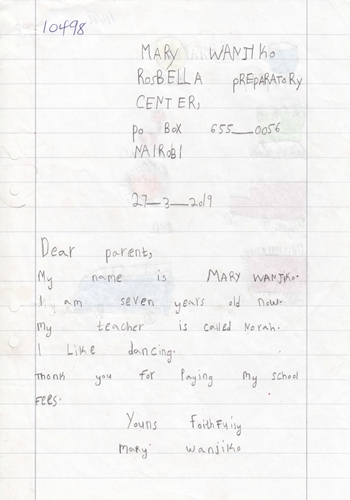 10498
MARY WANJIKO
ROSBELLA PREPARATORY
CENTER,
PO BOX 655__0056
NAIROBI
27__3__2019
Dear parent,
My name is MARY WANJIKO.
I am seven years old now.
My teacher is called Norah.
I Like dancing.
Thank you For Paying My school
FEES.
Youns FaithFuisy
Mary wansiko